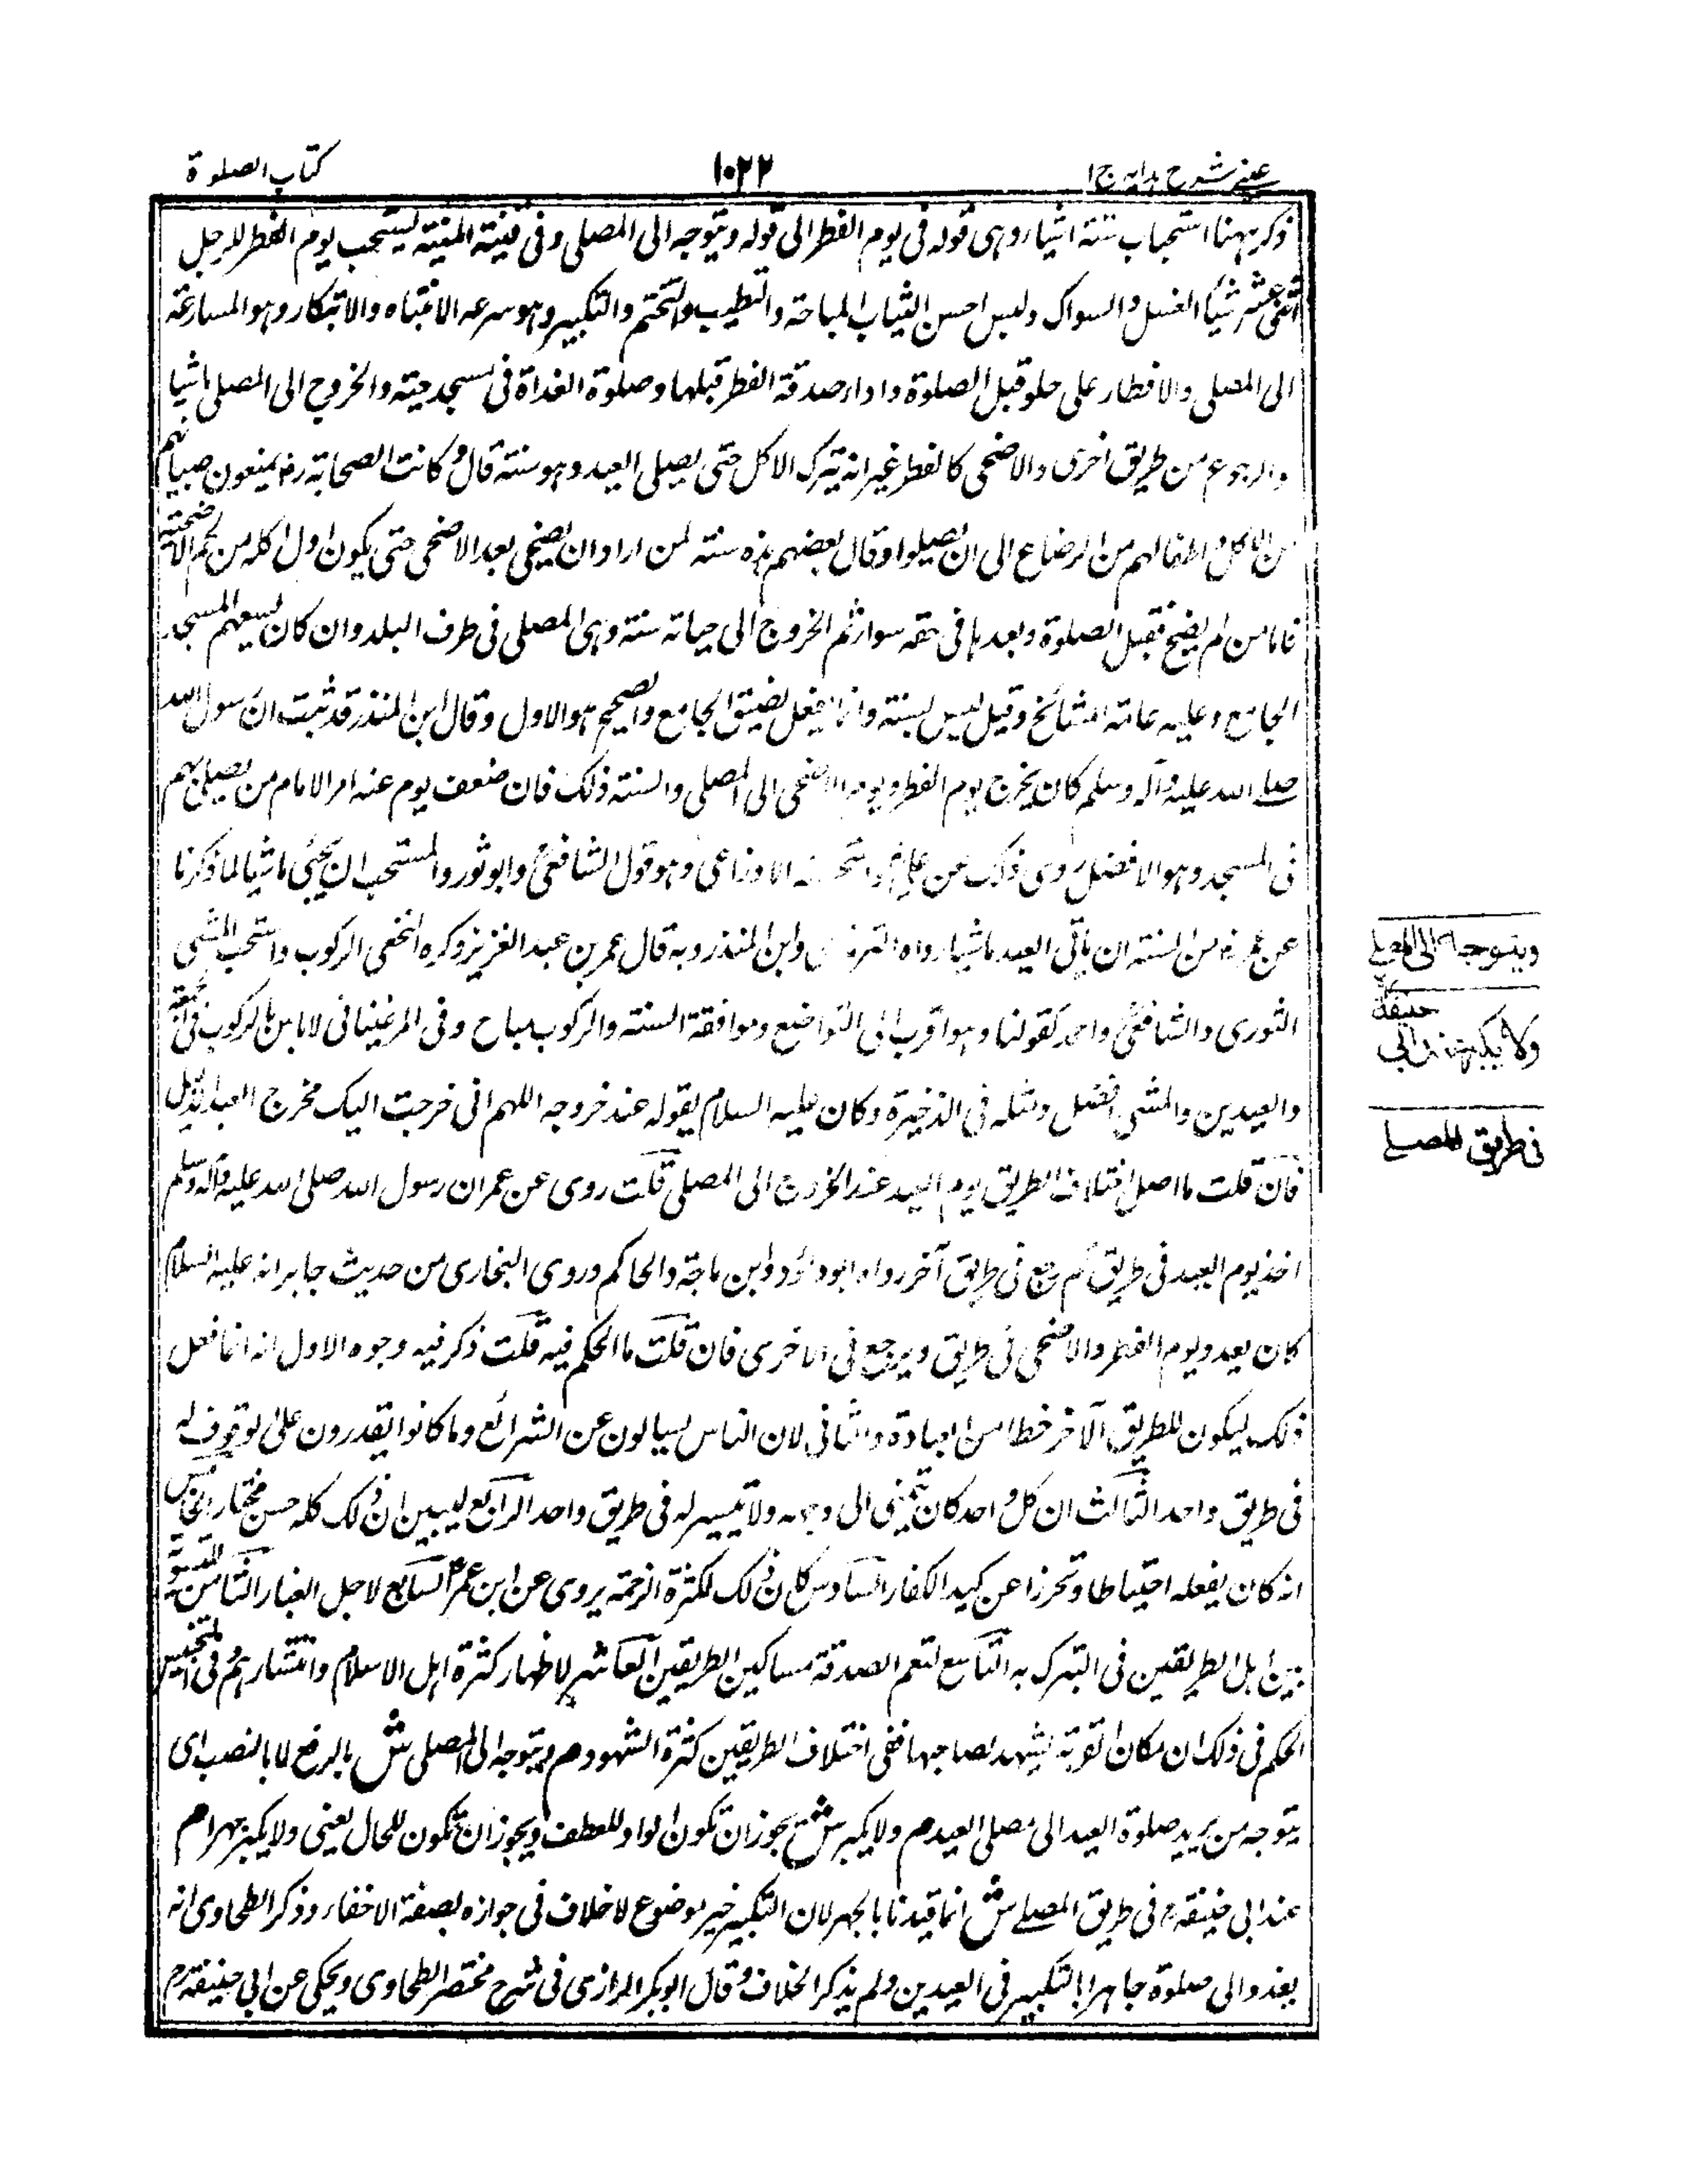 عيني شرح هداية ج ١
١٠٢٢
كتاب الصلوة
ذكر ههنا استحباب ستة اشياء وهى قوله فى يوم الفطر الى قوله ويتوجه الى المصلى وفى قنية المنية يستحب يوم الفطر للرجل
اثنى عشر شيئا الغسل والسواك ولبس احسن الثياب المباحة والتطيب والتختم والتكبير وهو سرعه الانتباه والابتكار وهو المسارعة
الى المصلى والافطار على حلو قبل الصلوة واداء صدقة الفطر قبلها وصلوة الغداة فى مسجد حيته والخروج الى المصلى ماشيا
والرجوع من طريق اخرى والاضحى كالفطر غير انه يترك الاكل حتى يصلى العيد وهو سنته قال و كانت الصحابة رض يمنعون صبيانهم
من الاكل و اطفالهم من الرضاع الى ان يصلوا وقال بعضهم هذه سنته لمن اراد ان يضحى بعد الاضحى حتى يكون اول اكله من لحم الاضحية
فاما من لم يضح فقبل الصلوة وبعدها فى حقه سواء ثم الخروج الى جبانه سنته وهى المصلى فى طرف البلد وان كان يسعهم المسجد
الجامع وعليه عامة المشائخ وقيل ليس بسنته وانما يفعل لضيق الجامع والصحيح هو الاول وقال ابن المنذر قد ثبت ان رسول الله
صلى الله عليه وآله وسلم كان يخرج يوم الفطر ويوم الاضحى الى المصلى والسنته ذلك فان ضعف يوم عنه امر الامام من يصلى بهم
فى المسجد وهو الافضل روى ذلك عن على الاوزاعى وهو قول الشافعى وابو ثور والمستحب ان يجيئ ماشيا لما ذكرنا
عن عمر من السنته ان ياتى العيد ماشيا رواه الترمذى وابن المنذر وبه قال عمر بن عبد العزيز وكره النخعى الركوب واستحب المشى
الثورى والشافعى واحمد كقولنا وهو اقرب الى التواضع وموافقة السنته والركوب مباح وفى المرغينانى لا باس بالركوب فى الجمعة
والعيدين والمشى افضل ومثله فى الذخيرة وكان عليه السلام يقوله عند خروجه اللهم انى خرجت اليك مخرج العبد الذليل
فان قلت ما اصل اختلاف الطريق يوم العيد عند الخروج الى المصلى قلت روى عن عمر ان رسول الله صلى الله عليه وآله وسلم
اخذ يوم العيد فى طريق ثم رجع فى طريق آخر رواه ابوداؤد وابن ماجة والحاكم وروى البخارى من حديث جابر انه عليه السلام
كان يعد ويوم الفطر والاضحى فى طريق ويرجع فى الاخرى فان قلت ما الحكم فيه قلت ذكر فيه وجوه الاول انه انما فعل
ذلك ليكون للطريق الآخر خطا من العبادة والثانى لان الناس يسالون عن الشرائع وما كانوا يقدرون على الوقوف له
فى طريق واحد الثالث ان كل واحد كان يتمنى الى وجهه ولا تيسير له فى طريق واحد الرابع ليبين ان ذلك كله حسن مختار الخامس
انه كان يفعله احتياطا وتحرزا عن كيد الكفار السادس كان ذلك لكثرة الزحمة يروى عن ابن عمر السابع لاجل الغبار الثامن للتسوية
بين اهل الطريقين فى التبرك به التاسع لتعم الصدقة مساكين الطريقين العاشر لاظهار كثرة اهل الاسلام وانتشارهم و فى التجنيس
الحكم فى ذلك ان مكان القربة يشهد لصاحبها ففى اختلاف الطريقين كثرة الشهود م ويتوجه الى المصلى ش بالرفع لا بالنصب اى
يتوجه من يريد صلوة العيد الى مصلى العيد م ولا يكبر ش يجوز ان تكون الواو للعطف ويجوز ان تكون للحال يعنى ولا يكبر جهرا م
عند ابى حنيفة رح فى طريق المصلى ش انما قيدنا بالجهر لان التكبير خير موضوع لا خلاف فى جوازه بصفة الاخفاء وذكر الطحاوى انه
يغدو الى صلوة جاهرا بالتكبير فى العيدين ولم يذكر الخلاف وقال ابوبكر الرازى فى شرح مختصر الطحاوى ويحكى عن ابى حنيفة رح
ويتوجه الى المصلى
ولا يكبر عند ابى حنيفة
فى طريق المصلى